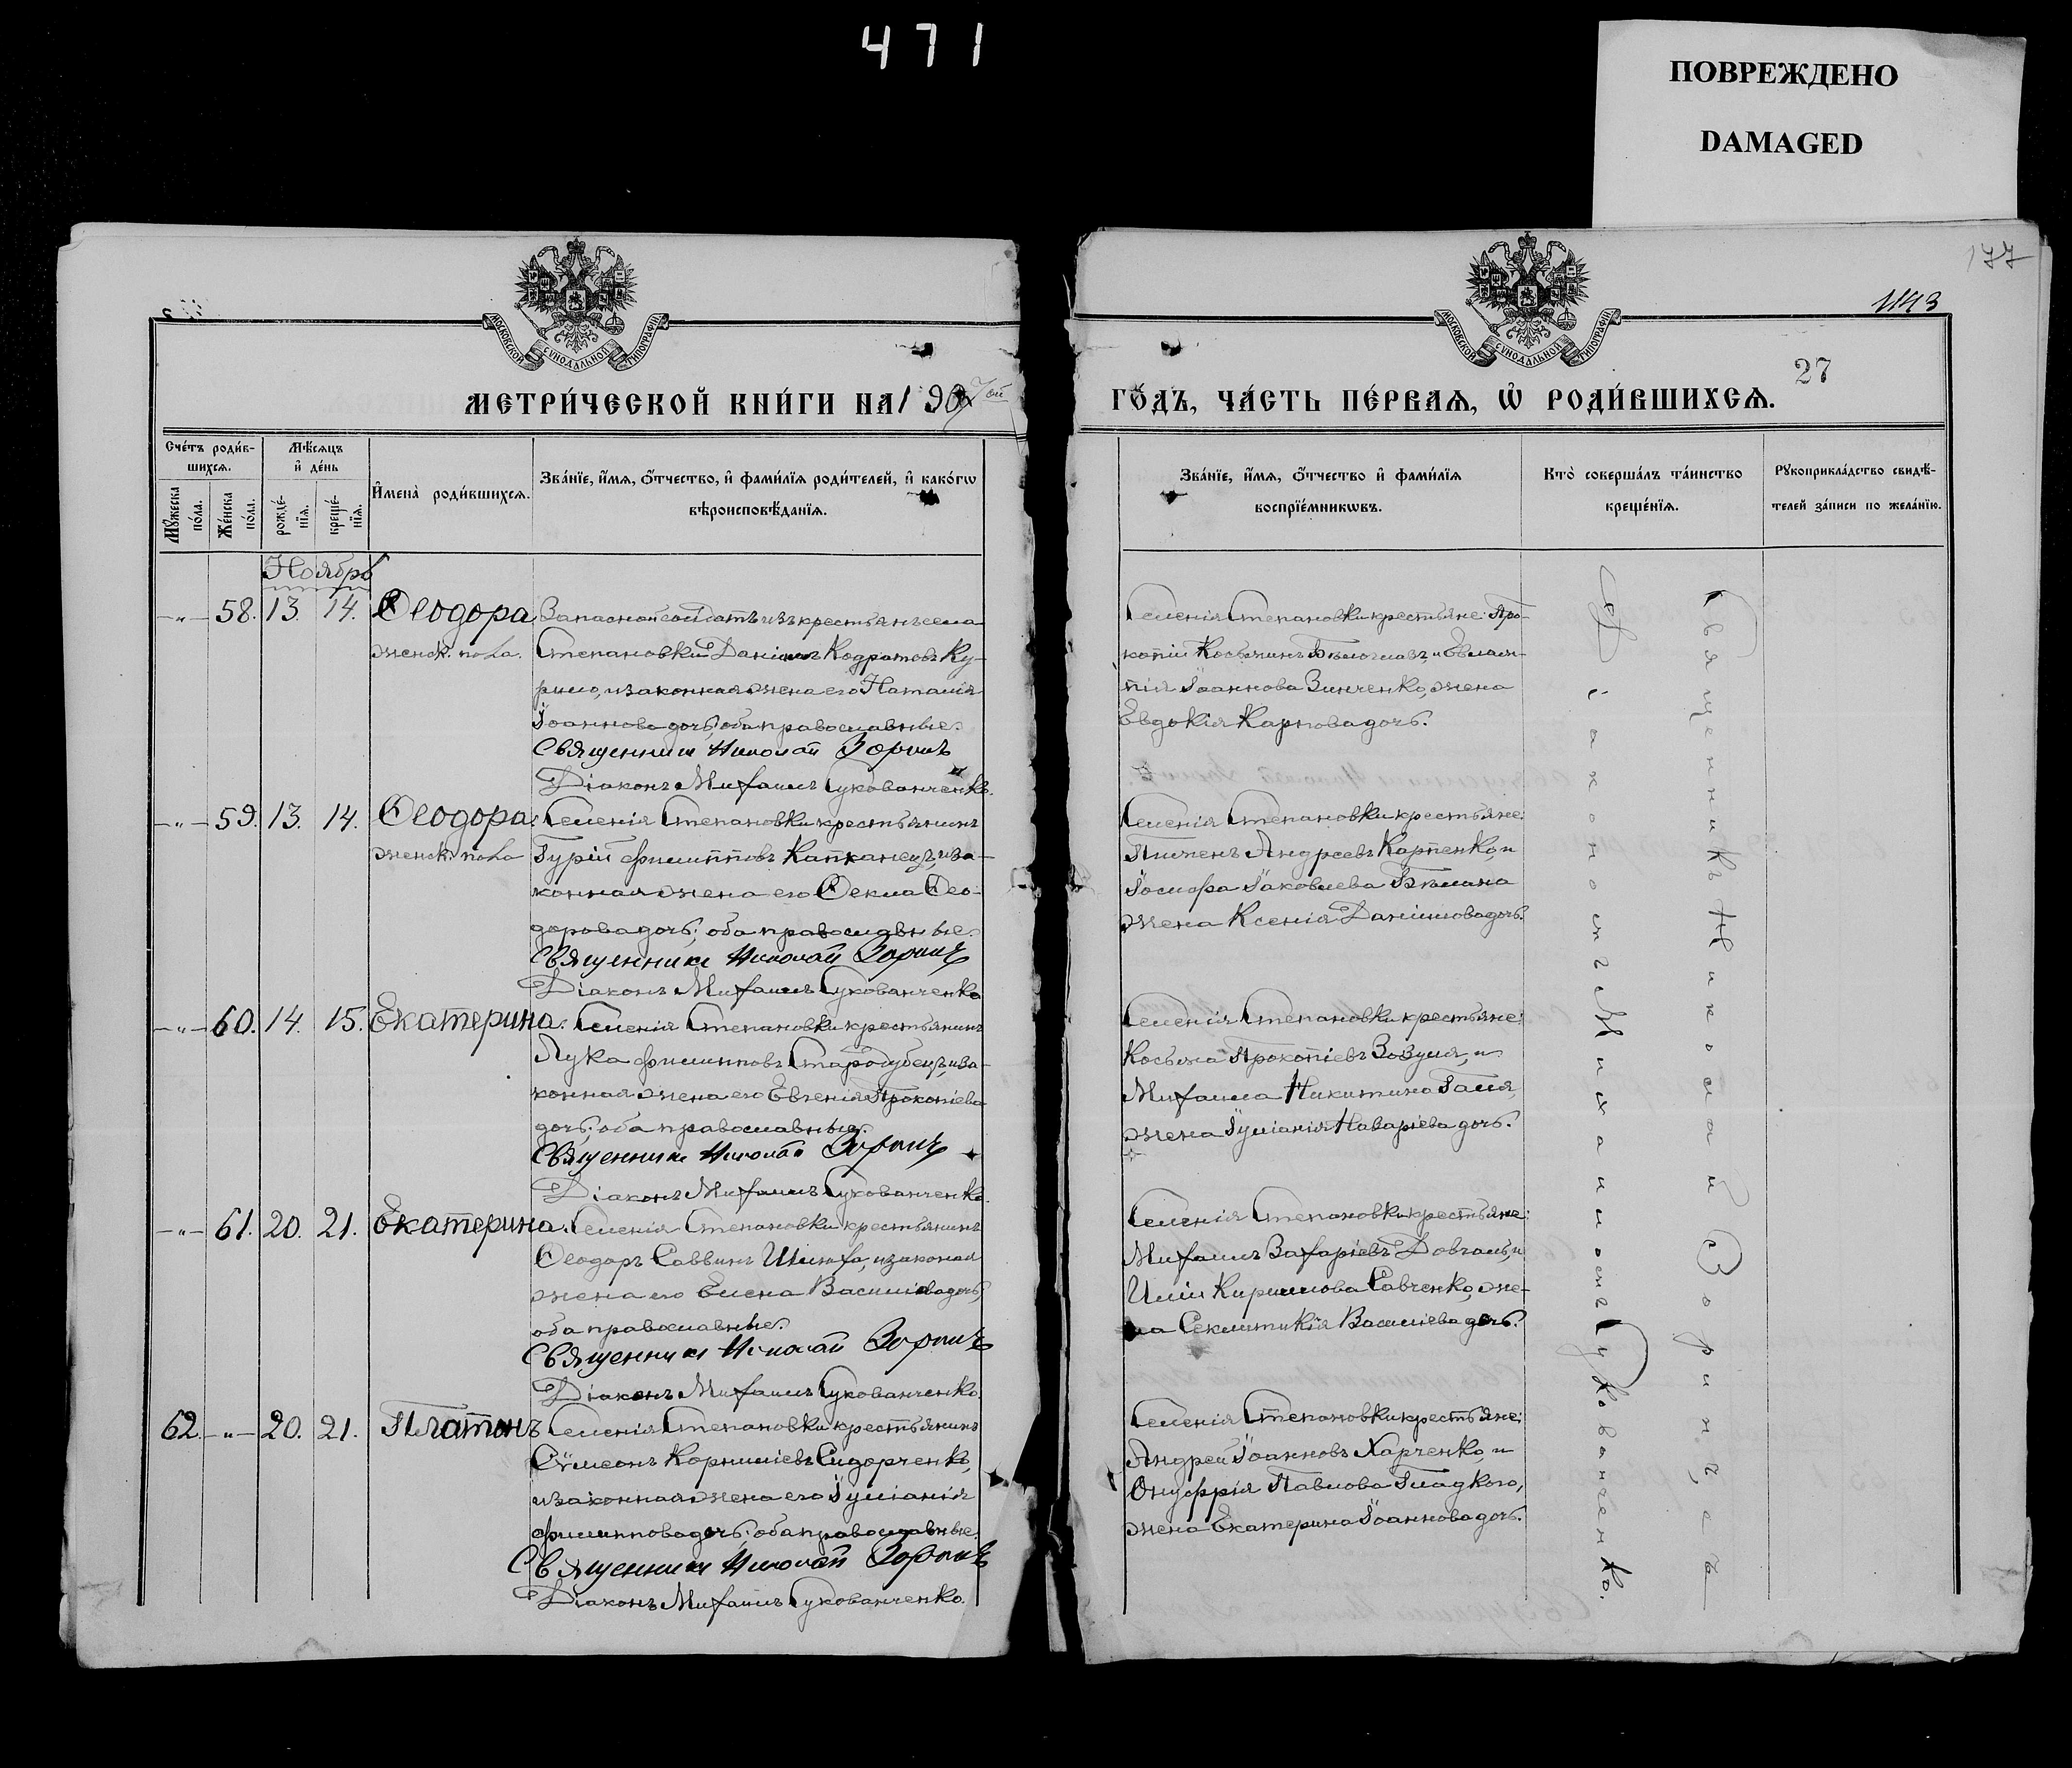 471
ПОВРЕЖДЕНО
DAMAGED
177
1143
27
МОСКОВСКОЙ СѴНОДАЛЬНОЙ ТИПОГРАФІИ
МОСКОВСКОЙ СѴНОДАЛЬНОЙ ТИПОГРАФІИ
МЕТРИ́ЧЕСКОЙ КНИ́ГИ НА 1907ой
ГО́ДЪ, ЧА́СТЬ ПЕ́РВАѦ, Ѡ҆ РОДИ́ВШИХСѦ.
Сче́тъ роди́в-
шихсѧ.
Мѣ́сѧцъ
и҆ де́нь
Мꙋ́жеска
по́ла.
Же́нска
по́ла.
рожде́-
нїѧ.
креще́-
нїѧ.
И҆мена̀ роди́вшихсѧ.
Зва́нїе, и҆́мѧ, ѻ҆́тчество, и҆ фами́лїѧ роди́телей, и҆ како́гѡ
вѣроисповѣ́данїѧ.
Зва́нїе, и҆́мѧ, ѻ҆́тчество и҆ фами́лїѧ
воспрїе́мникѡвъ.
Кто̀ соверша́лъ та́инство
креще́нїѧ.
Рꙋкоприкла́дство свидѣ́-
телей за́писи по жела́нїю.
Ноябрь
-"- 58. 13. 14. Ѳеодора
женск. пола.
Запасной солдатъ изъ крестьянъ села
Степановки Даніилъ Кодратовъ Ку-
рило, и законная жена его Наталія
Іоаннова дочь; оба православные.
Священникъ Николай Зоринъ
Діаконъ Михаилъ Сукованченко.
Селенія Степановки крестьяне: Про-
копій Космин и Евлам-
пія Іоаннова Зинченко, жена
Евдокія Карпова дочь.
-"- 59. 13. 14. Ѳеодора
женск. пола
Селенія Степановки крестьянинъ
Гурій Филипповъ Капканецъ, и за-
конная жена его Ѳекла Ѳео-
дорова дочь; оба православные.
Священникъ Николай Зоринъ
Діаконъ Михаилъ Сукованченко
Селенія Степановки крестьяне:
Пименъ Андреевъ Карпенко, и
Іосифа Іаковлева Бѣлана
жена Ксенія Даніилова дочь.
-"- 60. 14. 15. Екатерина.
Селенія Степановки крестьянинъ
Лука Филипповъ Старогубецъ, и за-
конная жена его Евгенія Прокопіева
дочь; оба православные.
Священникъ Николай Зоринъ
Діаконъ Михаилъ Сукованченко.
Селенія Степановки крестьяне:
Косьма Прокопіевъ Зозуля, и
Михаила Никитина Галя,
жена Іуліанія Назаріева дочь.
-"- 61. 20. 21. Екатерина.
Селенія Степановки крестьянинъ
Ѳеодоръ Саввинъ Шлюха, и законая
жена его Елена Василіева дочь,
оба православные.
Священникъ Николай Зоринъ
Діаконъ Михаилъ Сукованченко.
Селенія Степановки крестьяне:
Михаилъ Захаріевъ Довгаль, и
Иліи Кириллова Савченко, же-
на Секлитикія Василіева дочь.
62. -"- 20. 21. Платонъ
Селенія Степановки крестьянинъ
Сѵмеонъ Корниліевъ Сидорченко,
и законная жена его Іуліанія
Филиппова дочь; оба православные.
Священникъ Николай Зоринъ
Діаконъ Михаилъ Сукованченко.
Селенія Степановки крестьяне:
Андрей Іоанновъ Харченко, и
Онуфрія Павлова Гладкого,
жена Екатерина Іоаннова дочь.
Священникъ Николай Зоринъ, съ
Діакономъ Михаиломъ Сукованченко.